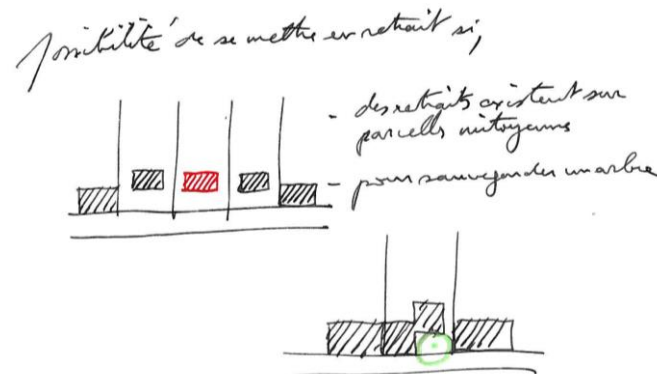 possibilité de se mettre en retrait si,
- des retraits existent sur
parcelles mitoyennes
- pour sauvegarder un arbre